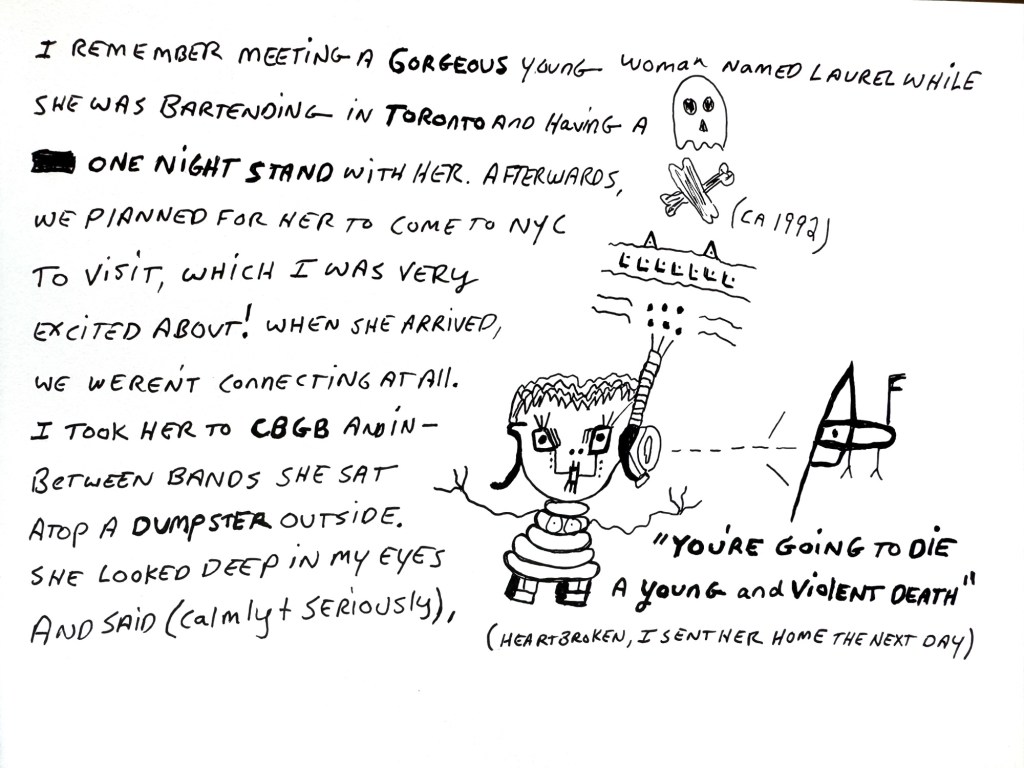 I REMEMBER MEETING A GORGEOUS YOUNG WOMAN NAMED LAUREL WHILE
SHE WAS BARTENDING IN TORONTO AND HAVING A
ONE NIGHT STAND WITH HER. AFTERWARDS,
WE PLANNED FOR HER TO COME TO NYC
(CA 1992)
TO VISIT, WHICH I WAS VERY
EXCITED ABOUT! WHEN SHE ARRIVED,
WE WEREN'T CONNECTING AT ALL.
I TOOK HER TO CBGB AND IN-
BETWEEN BANDS SHE SAT
ATOP A DUMPSTER OUTSIDE.
SHE LOOKED DEEP IN MY EYES
AND SAID (CALMLY + SERIOUSLY),
"YOU'RE GOING TO DIE
A YOUNG and VIOLENT DEATH"
(HEARTBROKEN, I SENT HER HOME THE NEXT DAY)